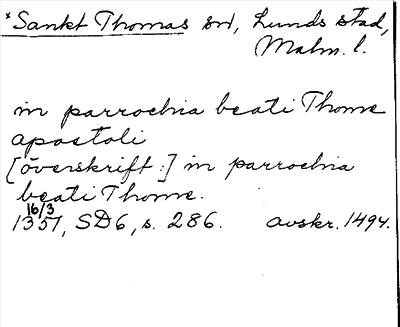 *Sankt Thomas sn, Lunds stad,
Malm. l.
in parrochia beati Thome
apostoli
[överskrift:] in parrochia
beati Thome.
16/3
1357, SD6, s. 286. avskr. 1494.